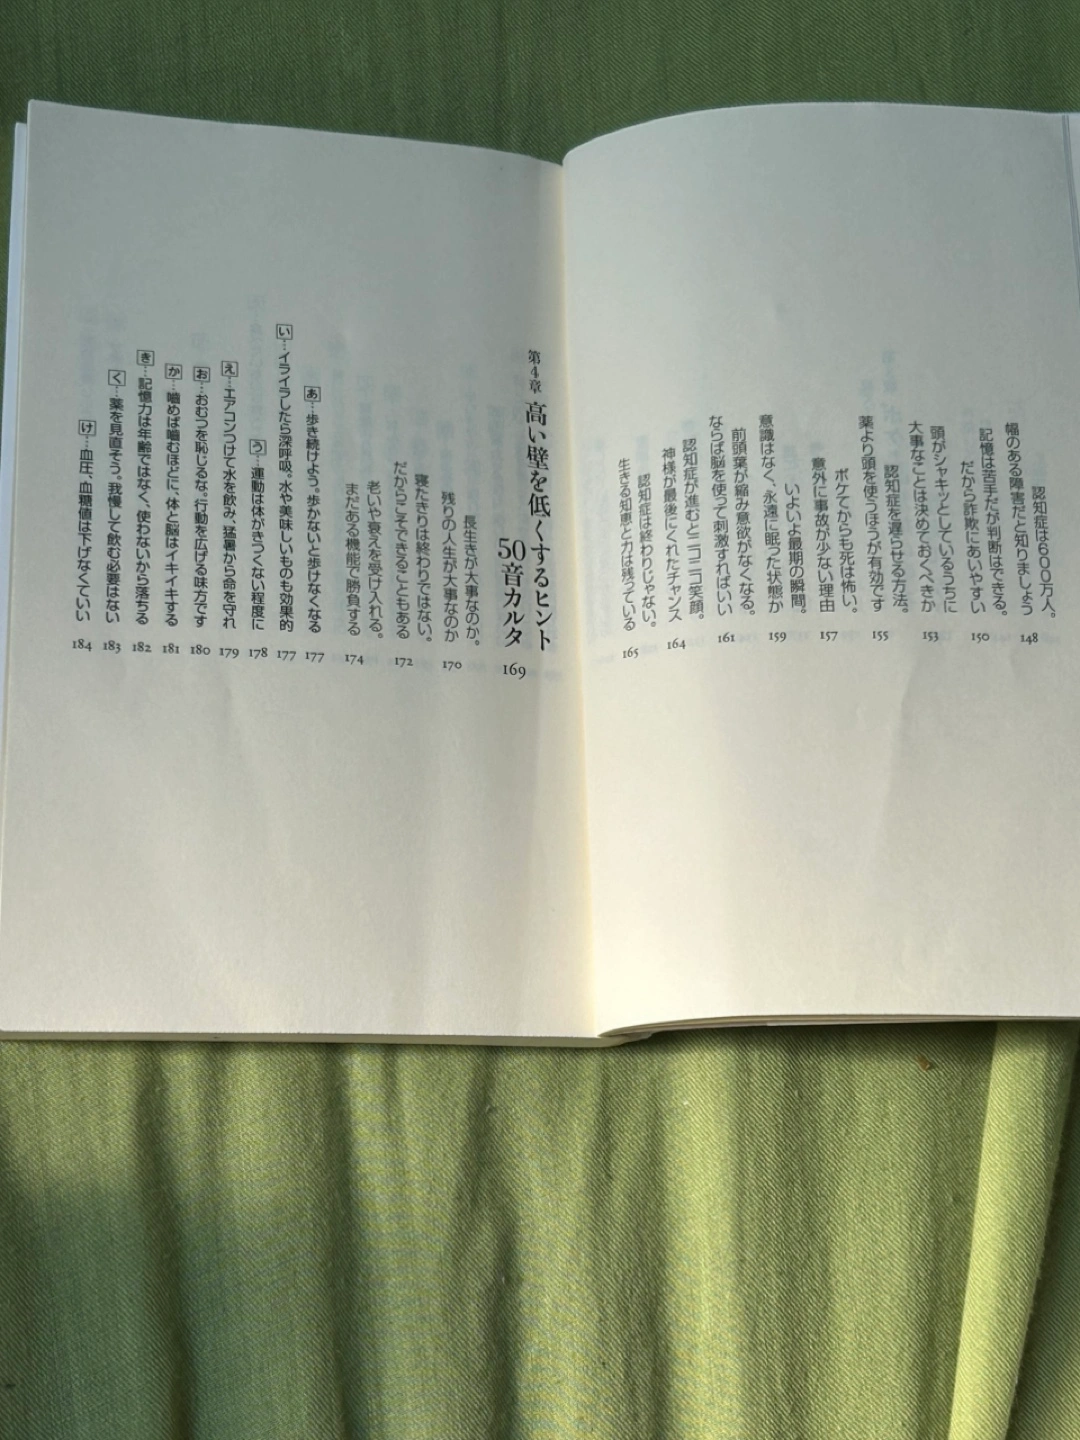 認知症は600万人。
幅のある障害だと知りましょう
148
記憶は苦手だが判断はできる。
だから詐欺にあいやすい
150
頭がシャキッとしているうちに
大事なことは決めておくべきか
153
認知症を遅らせる方法。
薬より頭を使うほうが有効です
155
ボケてからも死は怖い。
意外に事故が少ない理由
157
いよいよ最期の瞬間。
意識はなく、永遠に眠った状態か
159
前頭葉が縮み意欲がなくなる。
ならば脳を使って刺激すればいい
161
認知症が進むとニコニコ笑顔。
神様が最後にくれたチャンス
164
認知症は終わりじゃない。
生きる知恵と力は残っている
165
第4章 高い壁を低くするヒント
50音カルタ
169
長生きが大事なのか。
残りの人生が大事なのか
170
寝たきりは終わりではない。
だからこそできることもある
172
老いや衰えを受け入れる。
まだある機能で勝負する
174
あ…歩き続けよう。歩かないと歩けなくなる
177
い…イライラしたら深呼吸。水や美味しいものも効果的
177
う…運動は体がきつくない程度に
178
え…エアコンつけて水を飲み、猛暑から命を守れ
179
お…おむつを恥じるな。行動を広げる味方です
180
か…噛めば噛むほどに、体と脳はイキイキする
181
き…記憶力は年齢ではなく、使わないから落ちる
182
く…薬を見直そう。我慢して飲む必要はない
183
け…血圧、血糖値は下げなくていい
184